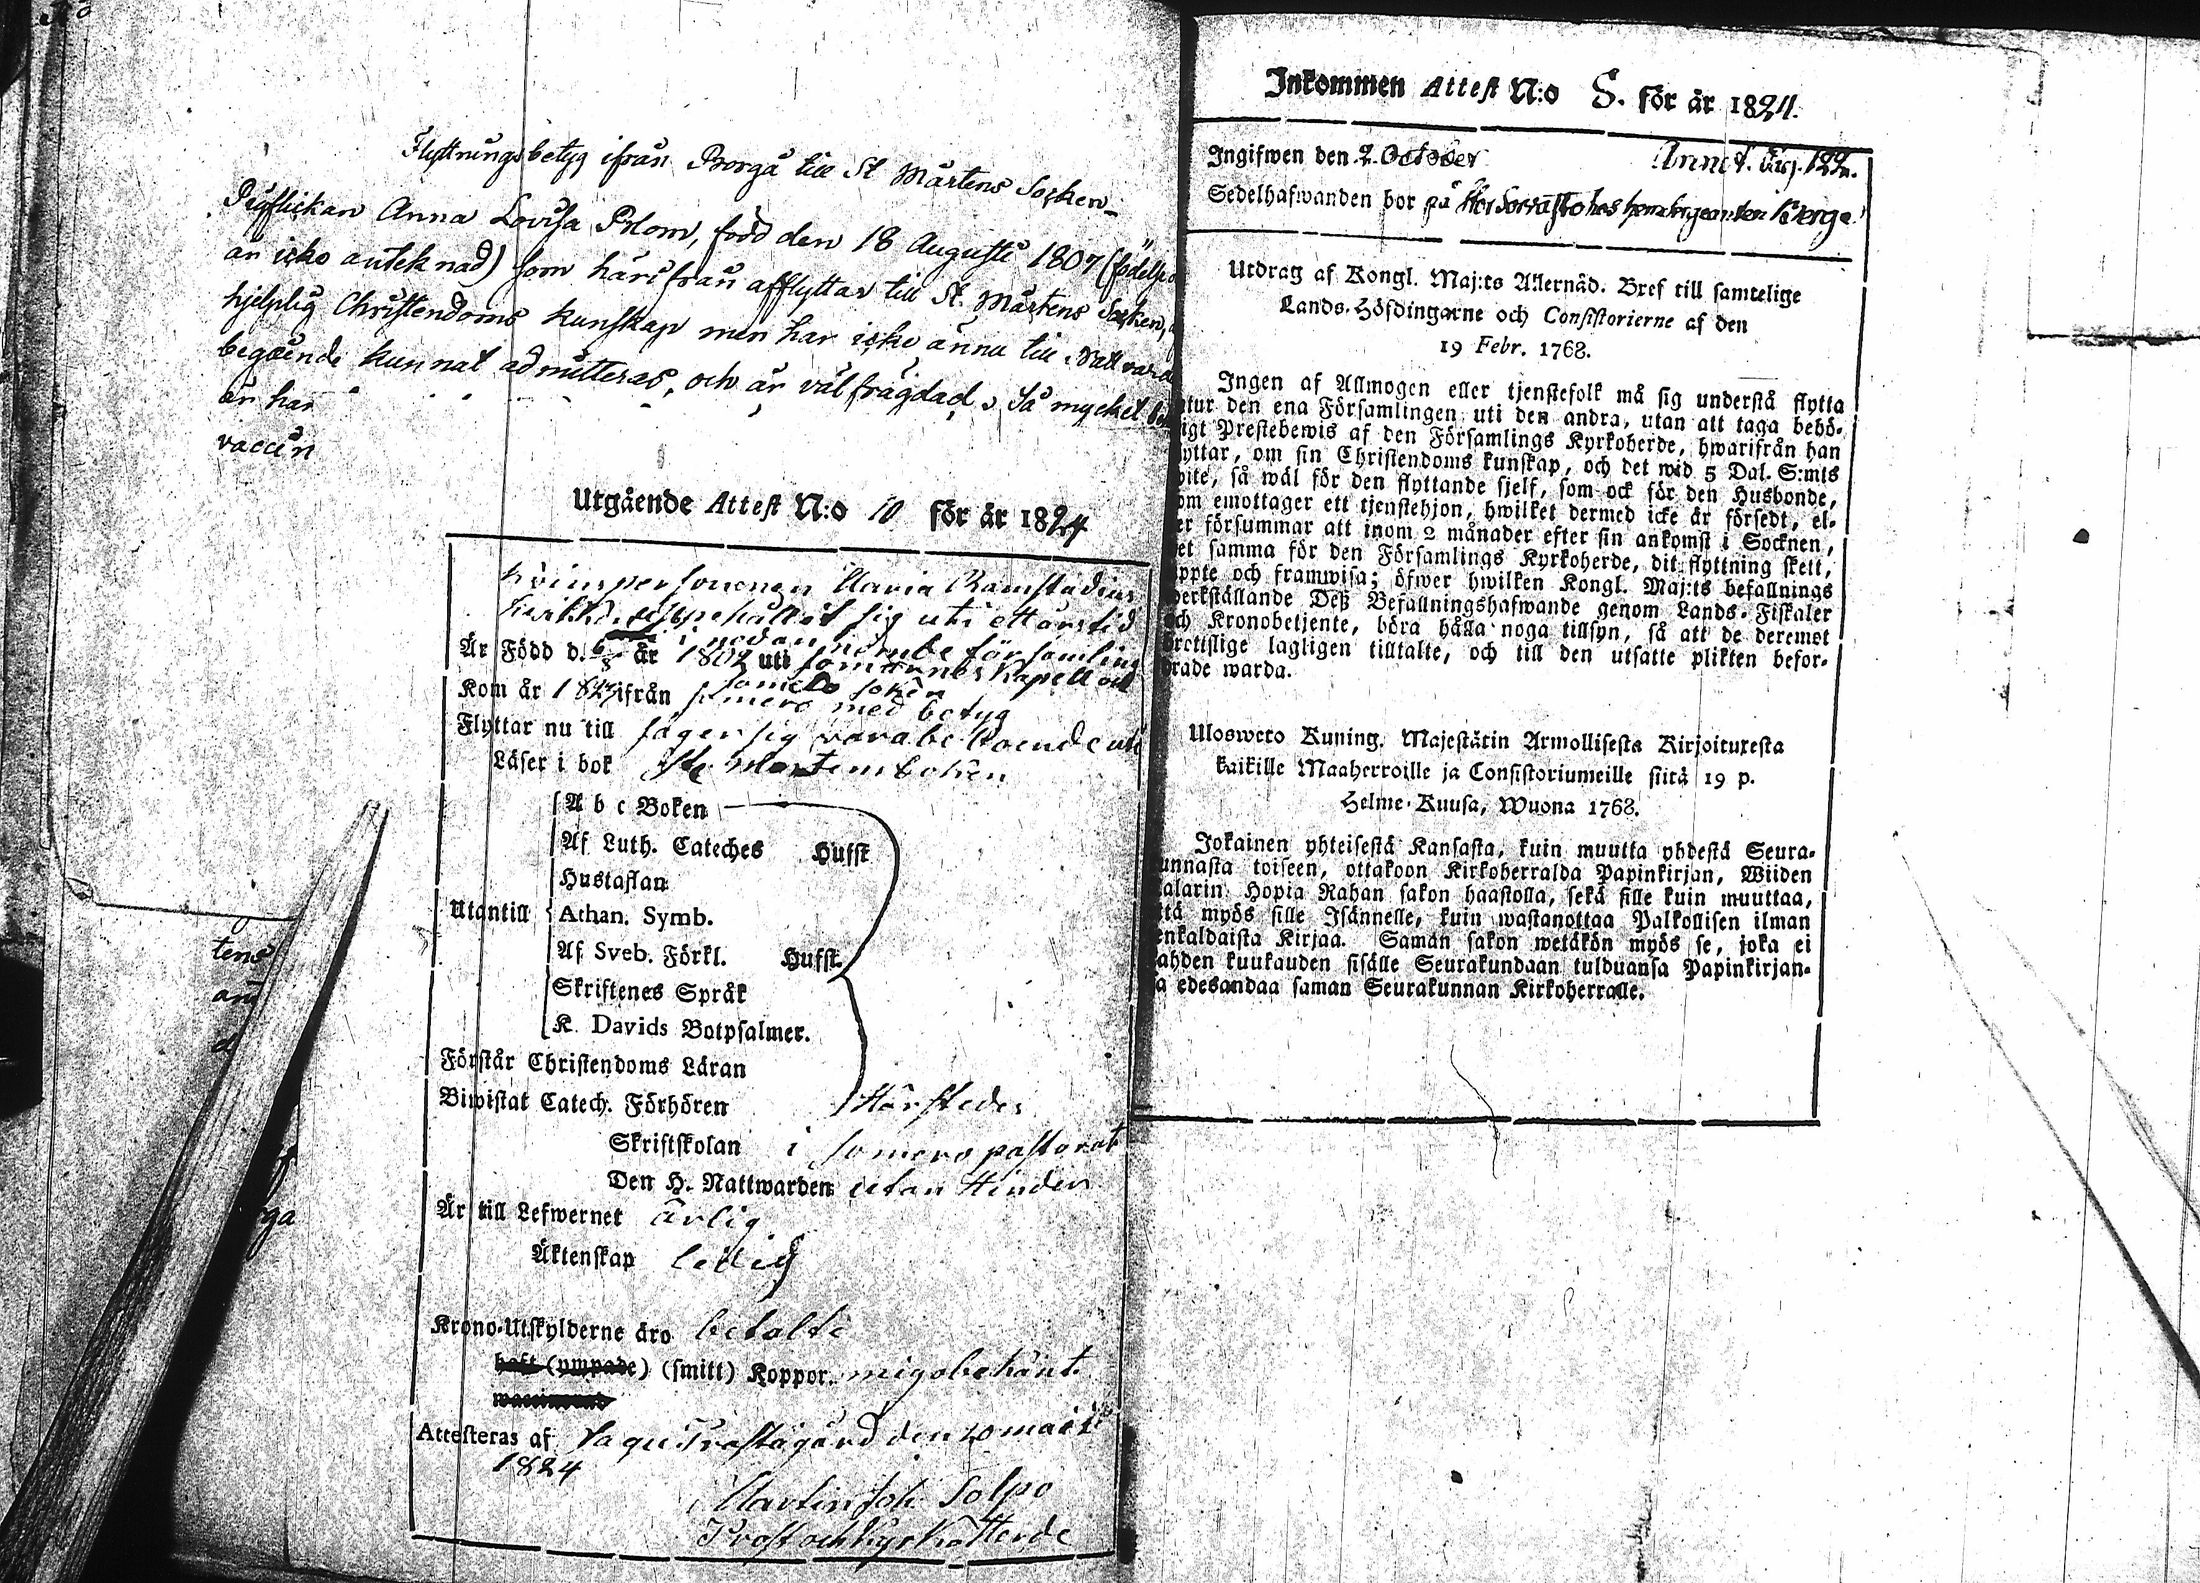 Flyttningsbetyg ifrån Borgå till St Mårtens Socken
Pigflickan Anna Lovisa Blom, född den 18 Augusti 1807 (födelse
är icke antecknad) som härifrån afflyttar till St. Mårtens Socken,
hjelplig Christendoms kunskap men har icke ännu till Nattvard
begående kunnat admitteras, och är väl frägdad. Så mycket
är har
vaccin
Utgående Attest N:o 10 för år 1824
Qvinspersonen Maria Ramstadius
uppehållit sig uti ett års tid
i nedannämnde församling
Är Född d. 6/8 år 1802 uti Somerniemi Kapell och
Somero soken
Kom år 1823 ifrån Somero med betyg
Flyttar nu till säger sig vara boende uti
Läser i bok St Mårtens soken
A b c Boken
Af Luth. Cateches Hufst
Hustaflan
Utantill Athan. Symb.
Af Sveb. Förkl. Hufst.
Skriftenes Språk
K. Davids Botpsalmer.
Förstår Christendoms Läran
Biwistat Catech. Förhören Härstedes
Skriftskolan i Somero pastorat
Den H. Nattwarden utan Hinder
Är till Lefwernet ärlig
Äktenskap ledig
Krono-Utskylderne äro betalte
haft (ympade) (smitt) Koppor. mig obekant
waccinerad
Attesteras af Sagu Prästagård den 20 maii
1824
Martin Joh. Tolpo
Prost och Kyrkoherde
tens
ga
Inkommen Attest N:o 8. för år 1824.
Ingifwen den 2. October Annot. pag. 122.
Sedelhafwanden bor på hos Berge
Utdrag af Kongl. Maj:ts Allernåd. Bref till samtelige
Lands-Höfdingarne och Consistorierne af den
19 Febr. 1768.
Ingen af Allmogen eller tjenstefolk må sig understå flytta
utur den ena Församlingen uti den andra, utan att taga behö-
igt Prestebewis af den Församlings Kyrkoherde, hwarifrån han
yttar, om sin Christendoms kunskap, och det wid 5 Dal. S:mts
wite, så wäl för den flyttande sjelf, som ock för den Husbonde,
om emottager ett tjenstehjon, hwilket dermed icke är försedt, el-
er försummar att inom 2 månader efter sin ankomst i Socknen,
et samma för den Församlings Kyrkoherde, dit flyttning skett,
uppte och framwisa; öfwer hwilken Kongl. Maj:ts befallnings
werkställande Deß Befallningshafwande genom Lands-Fiskaler
och Kronobetjente, böra hålla noga tillsyn, så att de deremot
brottslige lagligen tilltalte, och till den utsatte plikten befor-
rade warda.
Uloswero Kuning. Majestätin Armollisesta Kirjoituxesta
kaikille Maaherroille ja Consistoriumeille siitä 19 p.
Helme-Kuusa, Wuona 1768.
Jokainen yhteisestä Kansasta, kuin muutta yhdestä Seura-
unnasta toiseen, ottakoon Kirkoherralda Papinkirjan, Wiiden
alarin Hopia Rahan sakon haastolla, sekä sille kuin muuttaa,
tä myös sille Isännelle, kuin wastanottaa Palkollisen ilman
enkaldaista Kirjaa. Saman sakon wetäkön myös se, joka ei
ahden kuukauden sisälle Seurakundaan tulduansa Papinkirjan-
a edesandaa saman Seurakunnan Kirkoherralle.